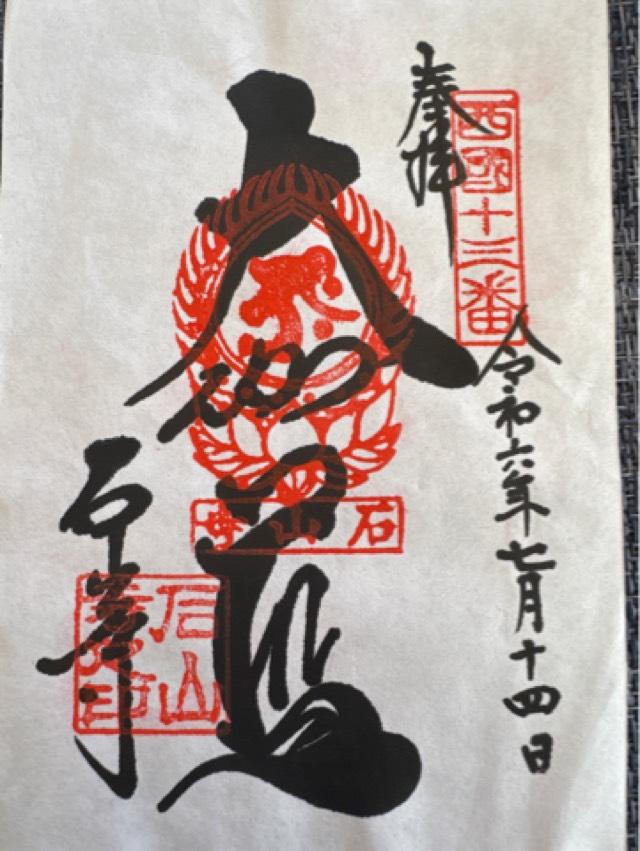 奉拝
西國十三番
令和六年七月十四日
大伽藍
石山寺
石山寺
石山